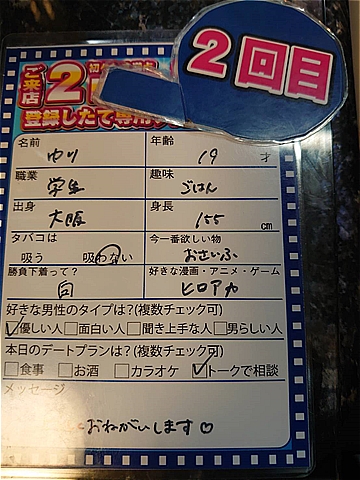 2回目
ご来店2
登録したて専用
名前 ゆり 年齢 19 才
職業 学生 趣味 ごはん
出身 大阪 身長 155 cm
タバコは 今一番欲しい物
吸う 吸わない おさいふ
勝負下着って? 好きな漫画・アニメ・ゲーム
白 ヒロアカ
好きな男性のタイプは?(複数チェック可)
優しい人 面白い人 聞き上手な人 男らしい人
本日のデートプランは?(複数チェック可)
食事 お酒 カラオケ トークで相談
メッセージ
おねがいします♡